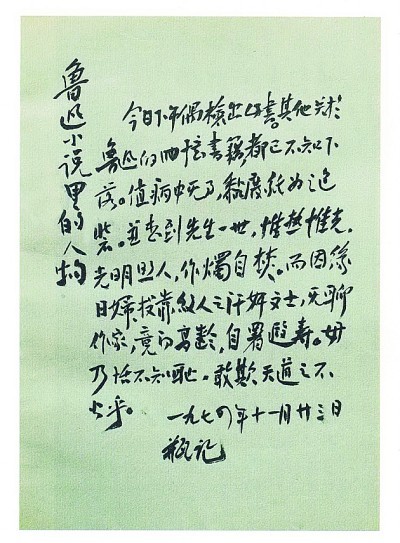 鲁迅小说里的人物
今日下午偶檢出此書。其他关於
鲁迅的回忆書籍都已不知下
落。值病中无事,黏废纸为之包
装。并想到先生一世,惟热惟光,
光明照人,作烛自焚。而因缘
日婦,投靠敌人之汗奸文士,无聊
作家,竟得高龄,自署遐寿。毋
乃恬不知耻。敢欺天道之不
公乎。一九七四年十一月廿三日
瓶记